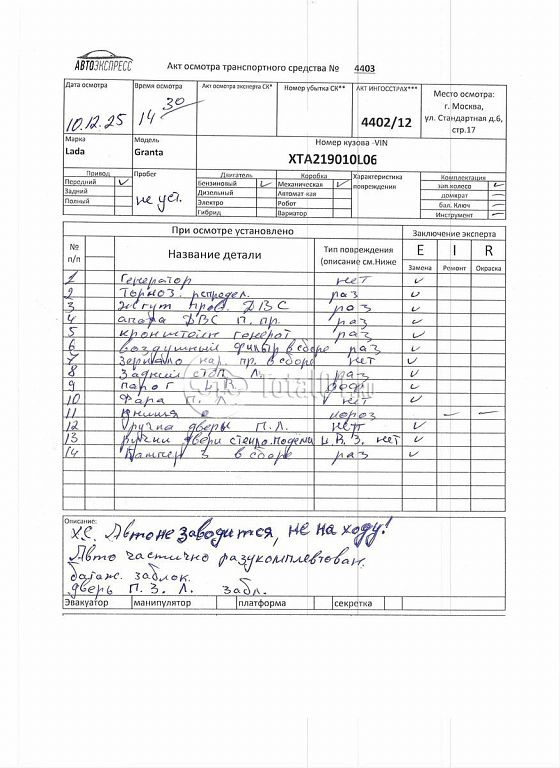 АВТОЭКСПРЕСС
Акт осмотра транспортного средства № 4403
Дата осмотра
10.12.25
Время осмотра
14 30
Акт осмотра эксперта СК*
Номер убытка СК**
АКТ ИНГОССТРАХ***
4402/12
Место осмотра:
г. Москва,
ул. Стандартная д.6,
стр.17
Марка
Lada
Модель
Granta
Номер кузова -VIN
XTA219010L06
Привод
Передний
Задний
Полный
Пробег
не уст.
Двигатель
Бензиновый
Дизельный
Электро
Гибрид
Коробка
Механическая
Автомат-кая
Робот
Вариатор
Характеристика
повреждения
Комплектация
зап.колесо
домкрат
бал. Ключ
Инструмент
При осмотре установлено
Заключение эксперта
№
п/п
Название детали
Тип повреждения
(описание см.Ниже
E I R
Замена Ремонт Окраска
1 Генератор нет
2 раз
3 жгут пров. ДВС раз
4 опора ДВС п. пр. раз
5 кронштейн генерат раз
6 воздушный фильтр в сборе раз
7 Зеркало нар. пр. в сборе нет
8 Задний стоп Л. раз
9 порог деф
10 Фара п. Л нет
11
12 Ручка дверы П.Л. нет
13 ручки двери стекло.подъема нет
14 Бампер З в сборе раз
TotalOff.ru
Описание:
Х.С. Авто не заводится, не на ходу!
Авто частично разукомплектован.
багаж. заблок.
дверь П. З. Л. забл.
Эвакуатор манипулятор платформа секретка